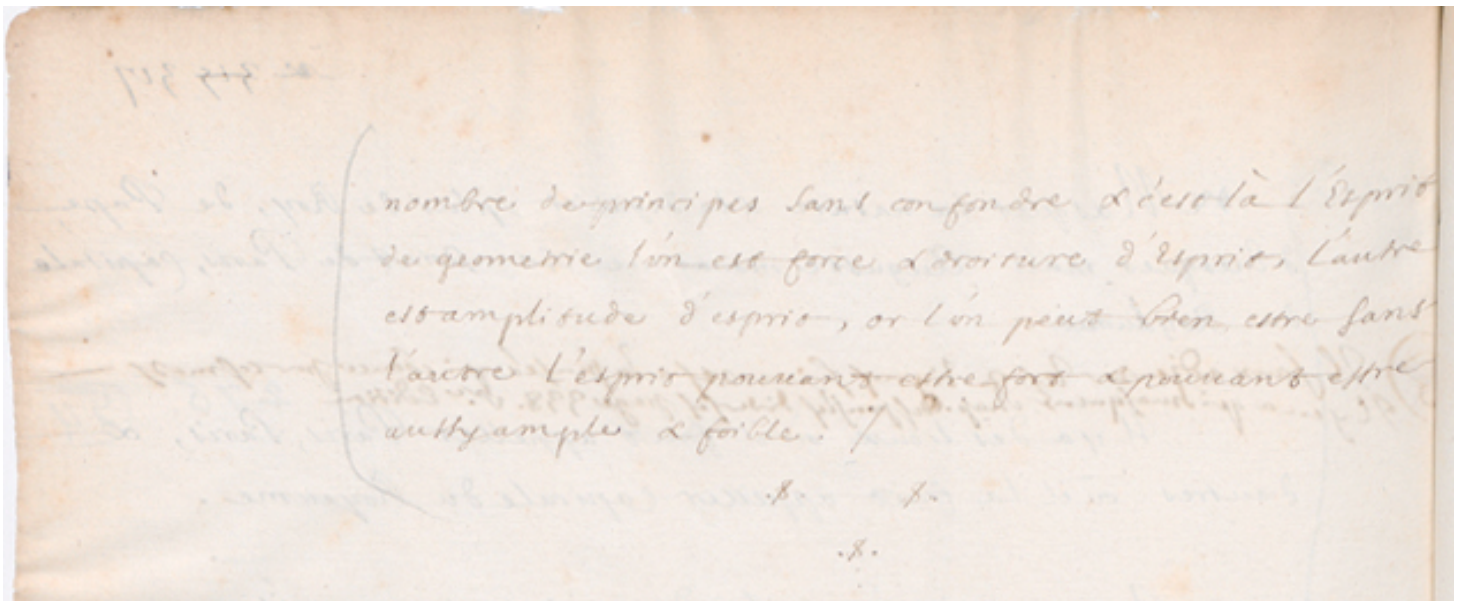 nombre de principes sans confondre & c'est là l'Esprit
de geometrie l'un est force & droiture d'Esprit, l'autre
est amplitude d'esprit, or l'un peut bien estre sans
l'autre l'esprit pouuant estre fort & pouuant estre
aussy ample & foible. /